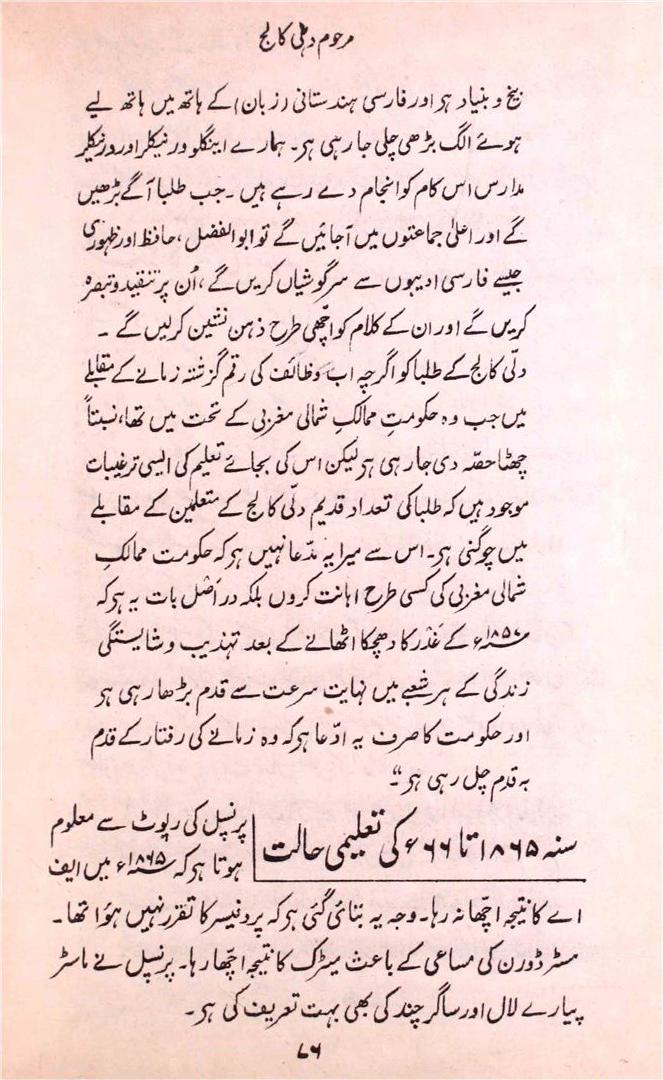 مرحوم دہلی کالج
بیخ و بنیاد ہر اور فارسی ہندستانی (زبان) کے ہاتھ میں ہاتھ لیے
ہوئے الگ بڑھی چلی جا رہی ہر۔ ہمارے اینگلو ورنیکلر اور ورنیکلر
مدارس اس کام کو انجام دے رہے ہیں۔ جب طلبا آگے بڑھیں
گے اور اعلیٰ جماعتوں میں آجائیں گے تو ابوالفضل، حافظ اور ظہوری
جیسے فارسی ادیبوں سے سرگوشیاں کریں گے، اُن پر تنقید و تبصرہ
کریں گے اور ان کے کلام کو اچھی طرح ذہن نشین کرلیں گے۔
دلّی کالج کے طلبا کو اگرچہ اب وظائف کی رقم گزشتہ زمانے کے مقابلے
میں جب وہ حکومتِ ممالکِ شمالی مغربی کے تحت میں تھا، نسبتاً
چھٹا حصّہ دی جا رہی ہر لیکن اس کی بجائے تعلیم کی ایسی ترغیبات
موجود ہیں کہ طلبا کی تعداد قدیم دلّی کالج کے متعلمین کے مقابلے
میں چوگنی ہر۔ اس سے میرا یہ مدّعا نہیں ہر کہ حکومت ممالکِ
شمالی مغربی کی کسی طرح اہانت کروں بلکہ در اصل بات یہ ہر کہ
۱۸۵۷ء کے غدر کا دھچکا اٹھانے کے بعد تہذیب و شایستگی
زندگی کے ہر شعبے میں نہایت سرعت سے قدم بڑھا رہی ہر
اور حکومت کا صرف یہ ادّعا ہر کہ وہ زمانے کی رفتار کے قدم
بہ قدم چل رہی ہر“
سنہ ۱۸۶۵ تا ۶۶ء کی تعلیمی حالت
پرنسپل کی رپوٹ سے معلوم
ہوتا ہر کہ ۱۸۶۵ء میں ایف
اے کا نتیجہ اچھا نہ رہا۔ وجہ یہ بتائی گئی ہر کہ پروفیسر کا تقرر نہیں ہؤا تھا۔
مسٹر ڈورن کی مساعی کے باعث میٹرک کا نتیجہ اچھا رہا۔ پرنسپل نے ماسٹر
پیارے لال اور ساگر چند کی بھی بہت تعریف کی ہر۔
۷۶